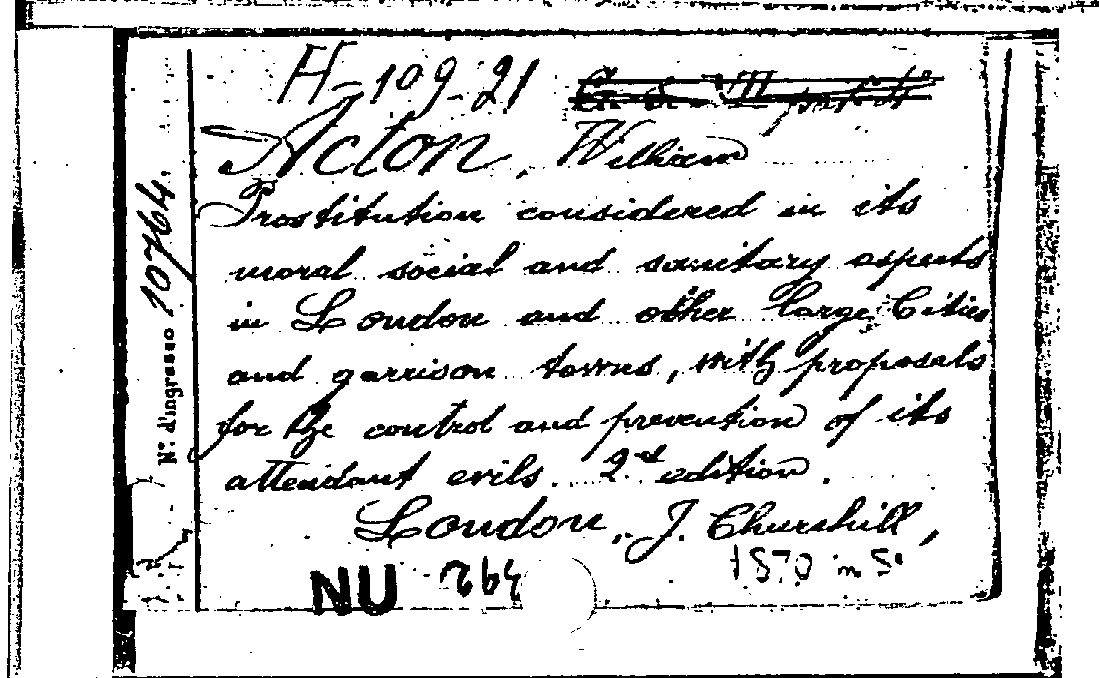 H-109-21
Acton, William
Prostitution considered in its
moral social and sanitary aspects
in London and other large Cities
and garrison towns, with proposals
for the control and prevention of its
attendant evils. 2nd edition.
London, J. Churchill,
1870 in 8°
NU 264
N.° d'ingresso 10764.